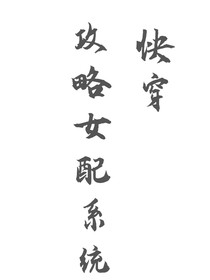 快穿
攻略女配系统